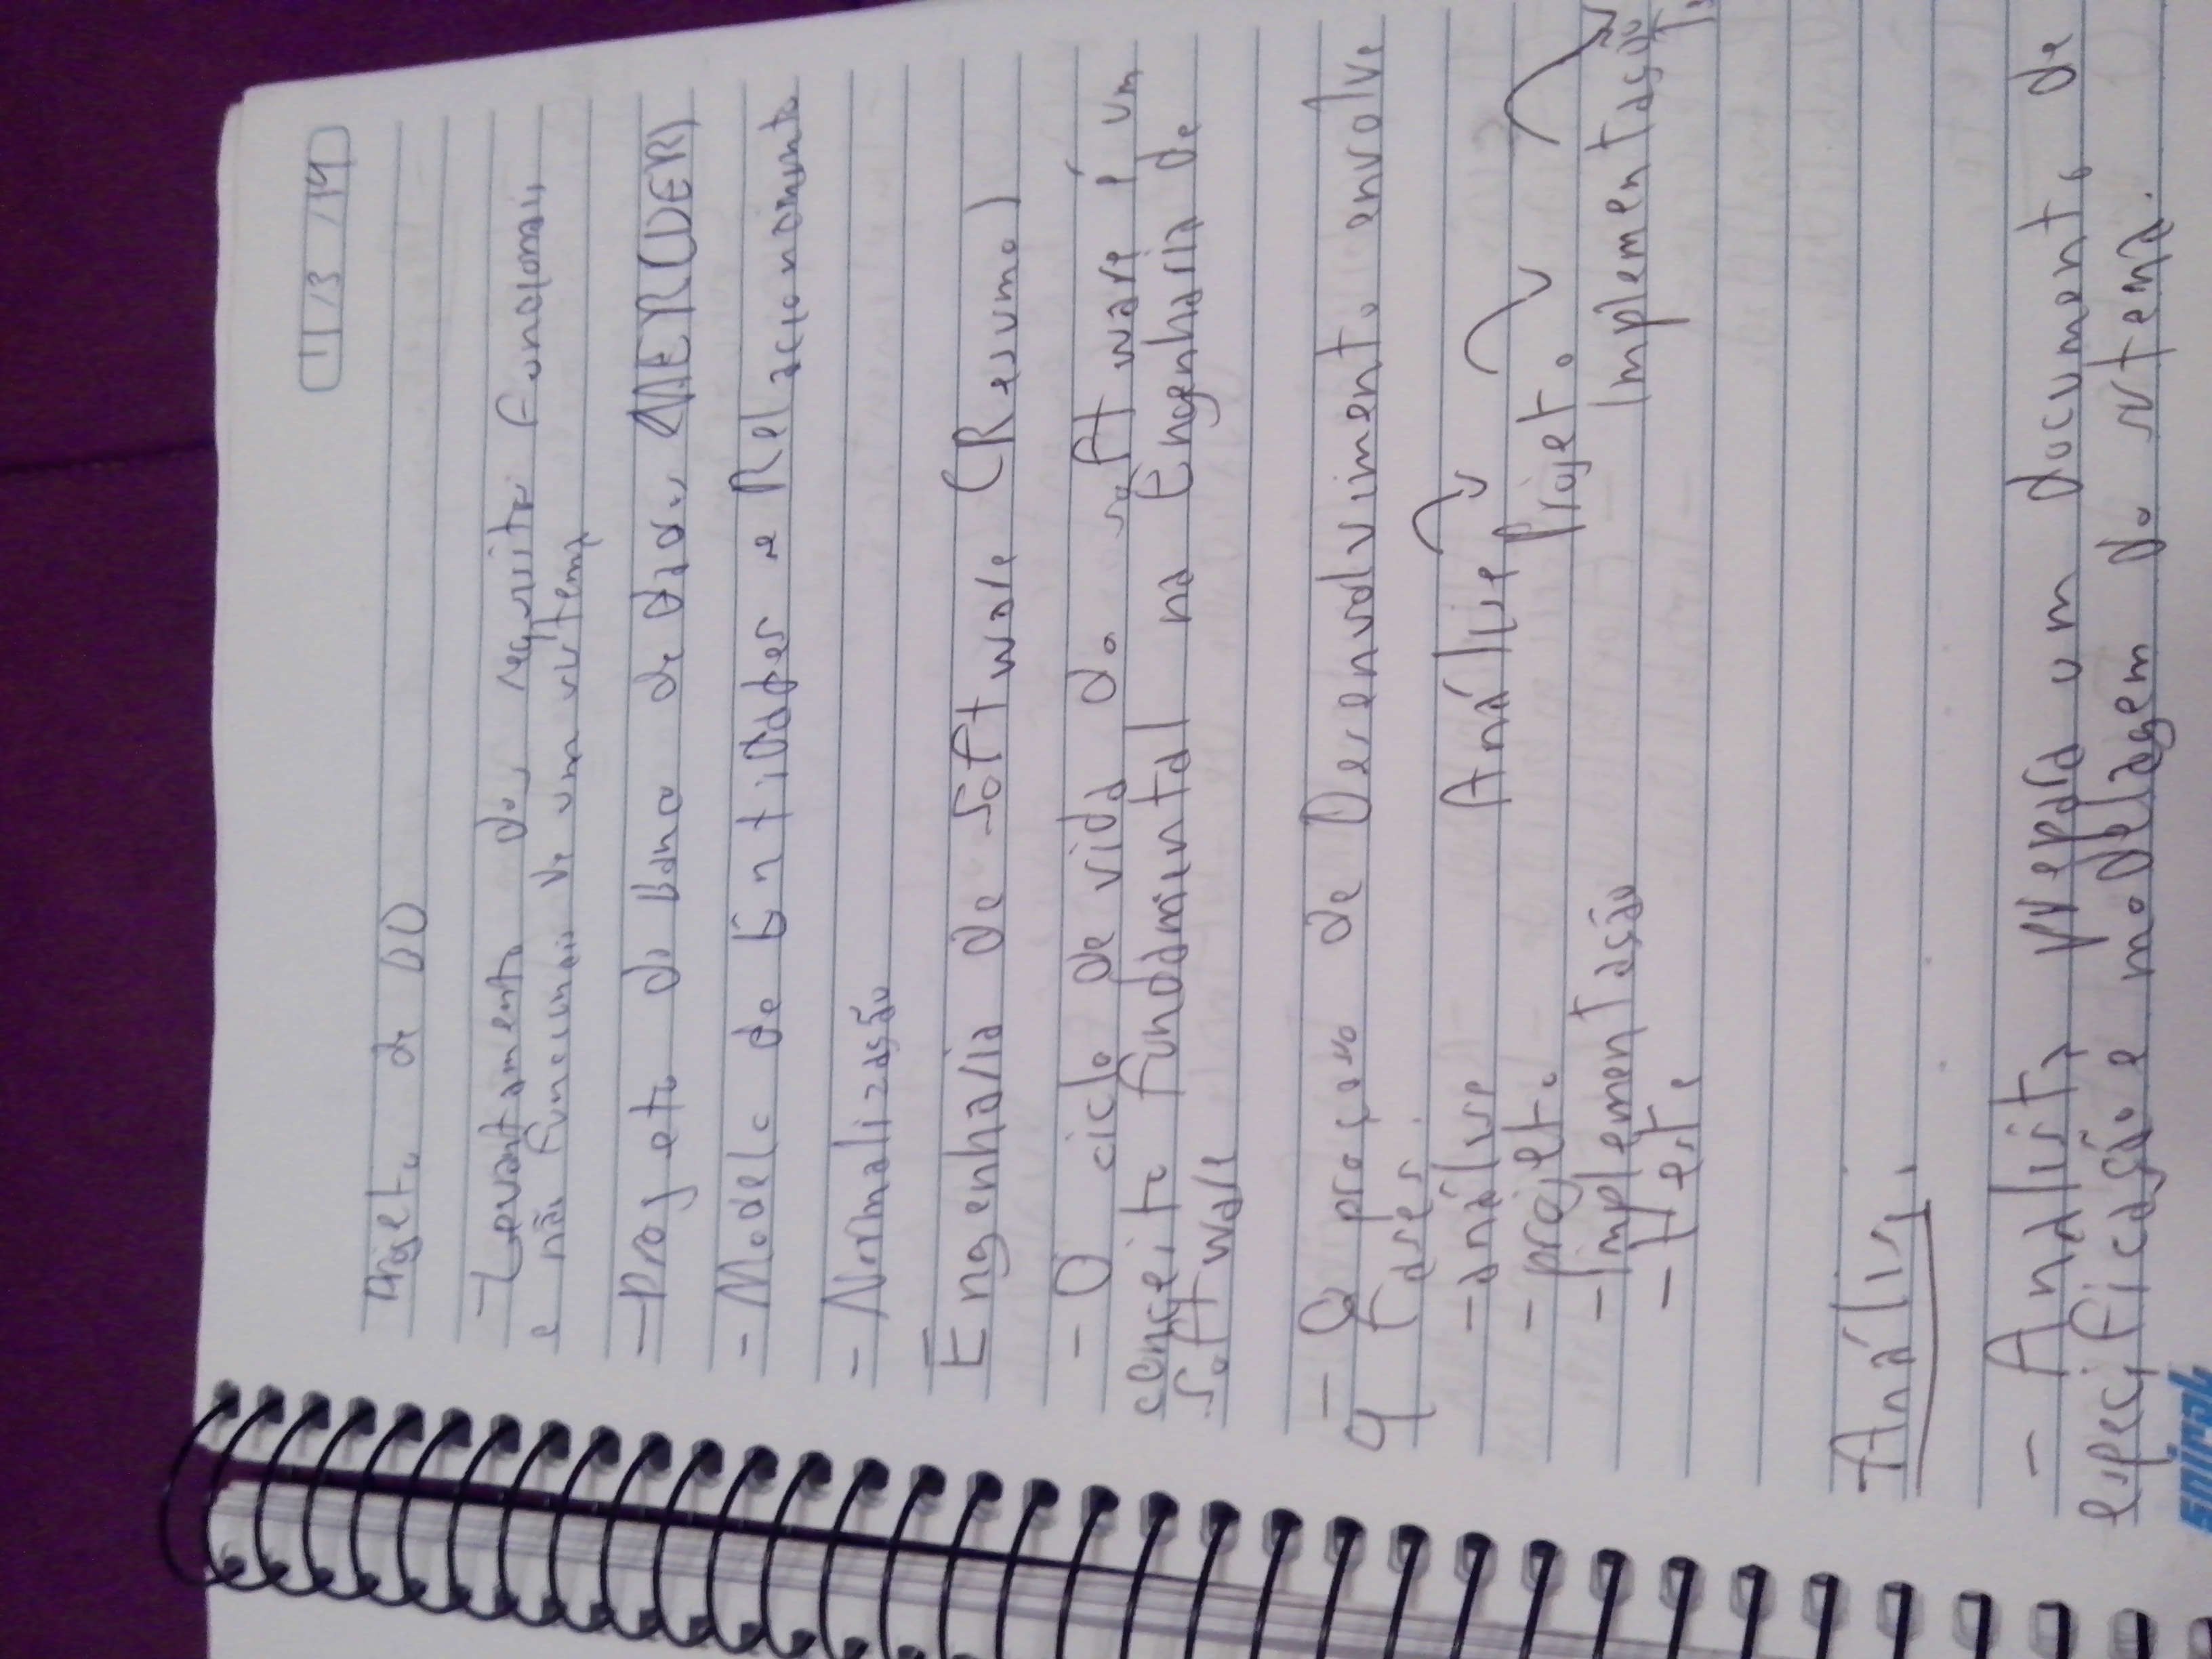 11/3/19
Projeto de BD
- Levantamento dos requisitos Funcionais
e não funcionais de um sistema
- Projeto de Banco de dados MER(DER)
- Modelo de Entidades e Relacionamento
- Normalização
Engenharia de Software (Resumo)
- O ciclo de vida do software é um
conceito fundamental na Engenharia de
Software
- O processo de Desenvolvimento envolve
4 Fases.
- análise
- projeto
- Implementação
- teste
Análise
Projeto
Implementação
Análise
- Analista prepara um documento de
especificação e modelagem do sistema.
spiral